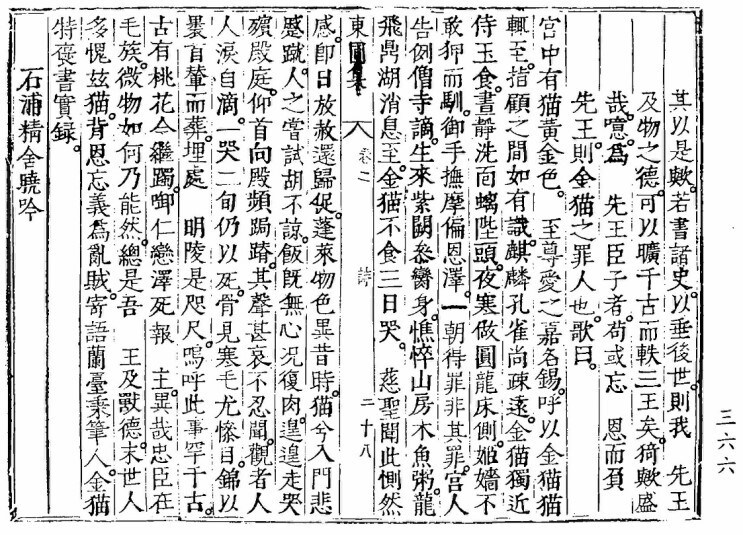 其以是歟。若書諸史。以垂後世。則我 先王
及物之德。可以曠千古而軼三王矣。猗歟盛
哉。噫。爲 先王臣子者。苟或忘 恩而負
先王。則金猫之罪人也。歌曰。
宮中有猫黃金色。 至尊愛之嘉名錫。呼以金猫猫
輒至。指顧之間如有識。麒麟孔雀尙疎遠。金猫獨近
侍玉食。晝靜洗面螭陛頭。夜寒做圓龍床側。姬嬙不
敢狎而馴。御手撫摩偏恩澤。一朝得罪非其罪。宮人
告例僧寺謫。生來紫闥叅臠身。憔悴山房木魚粥。龍
飛鼎湖消息至。金猫不食三日哭。 慈聖聞此惻然
東圃集 卷之 詩 二十八
感。卽日放赦還歸促。蓬萊物色異昔時。猫兮入門悲
慼蹴。人之嘗試胡不諒。飯旣無心况復肉。遑遑走哭
殯殿庭。仰首向殿頻跼蹐。其聲甚哀不忍聞。觀者人
人淚自滴。一哭二旬仍以死。骨見寒毛尤慘目。錦以
裹首輦而葬。埋處 明陵是咫尺。嗚呼此事罕于古。
古有桃花今繼躅。啣仁戀澤死報 主。異哉忠臣在
毛族。微物如何乃能然。總是吾 王及獸德。末世人
多愧玆猫。背恩忘義爲亂賊。寄語蘭臺秉筆人。金猫
特褒書實錄。
石浦精舍曉吟
三六六